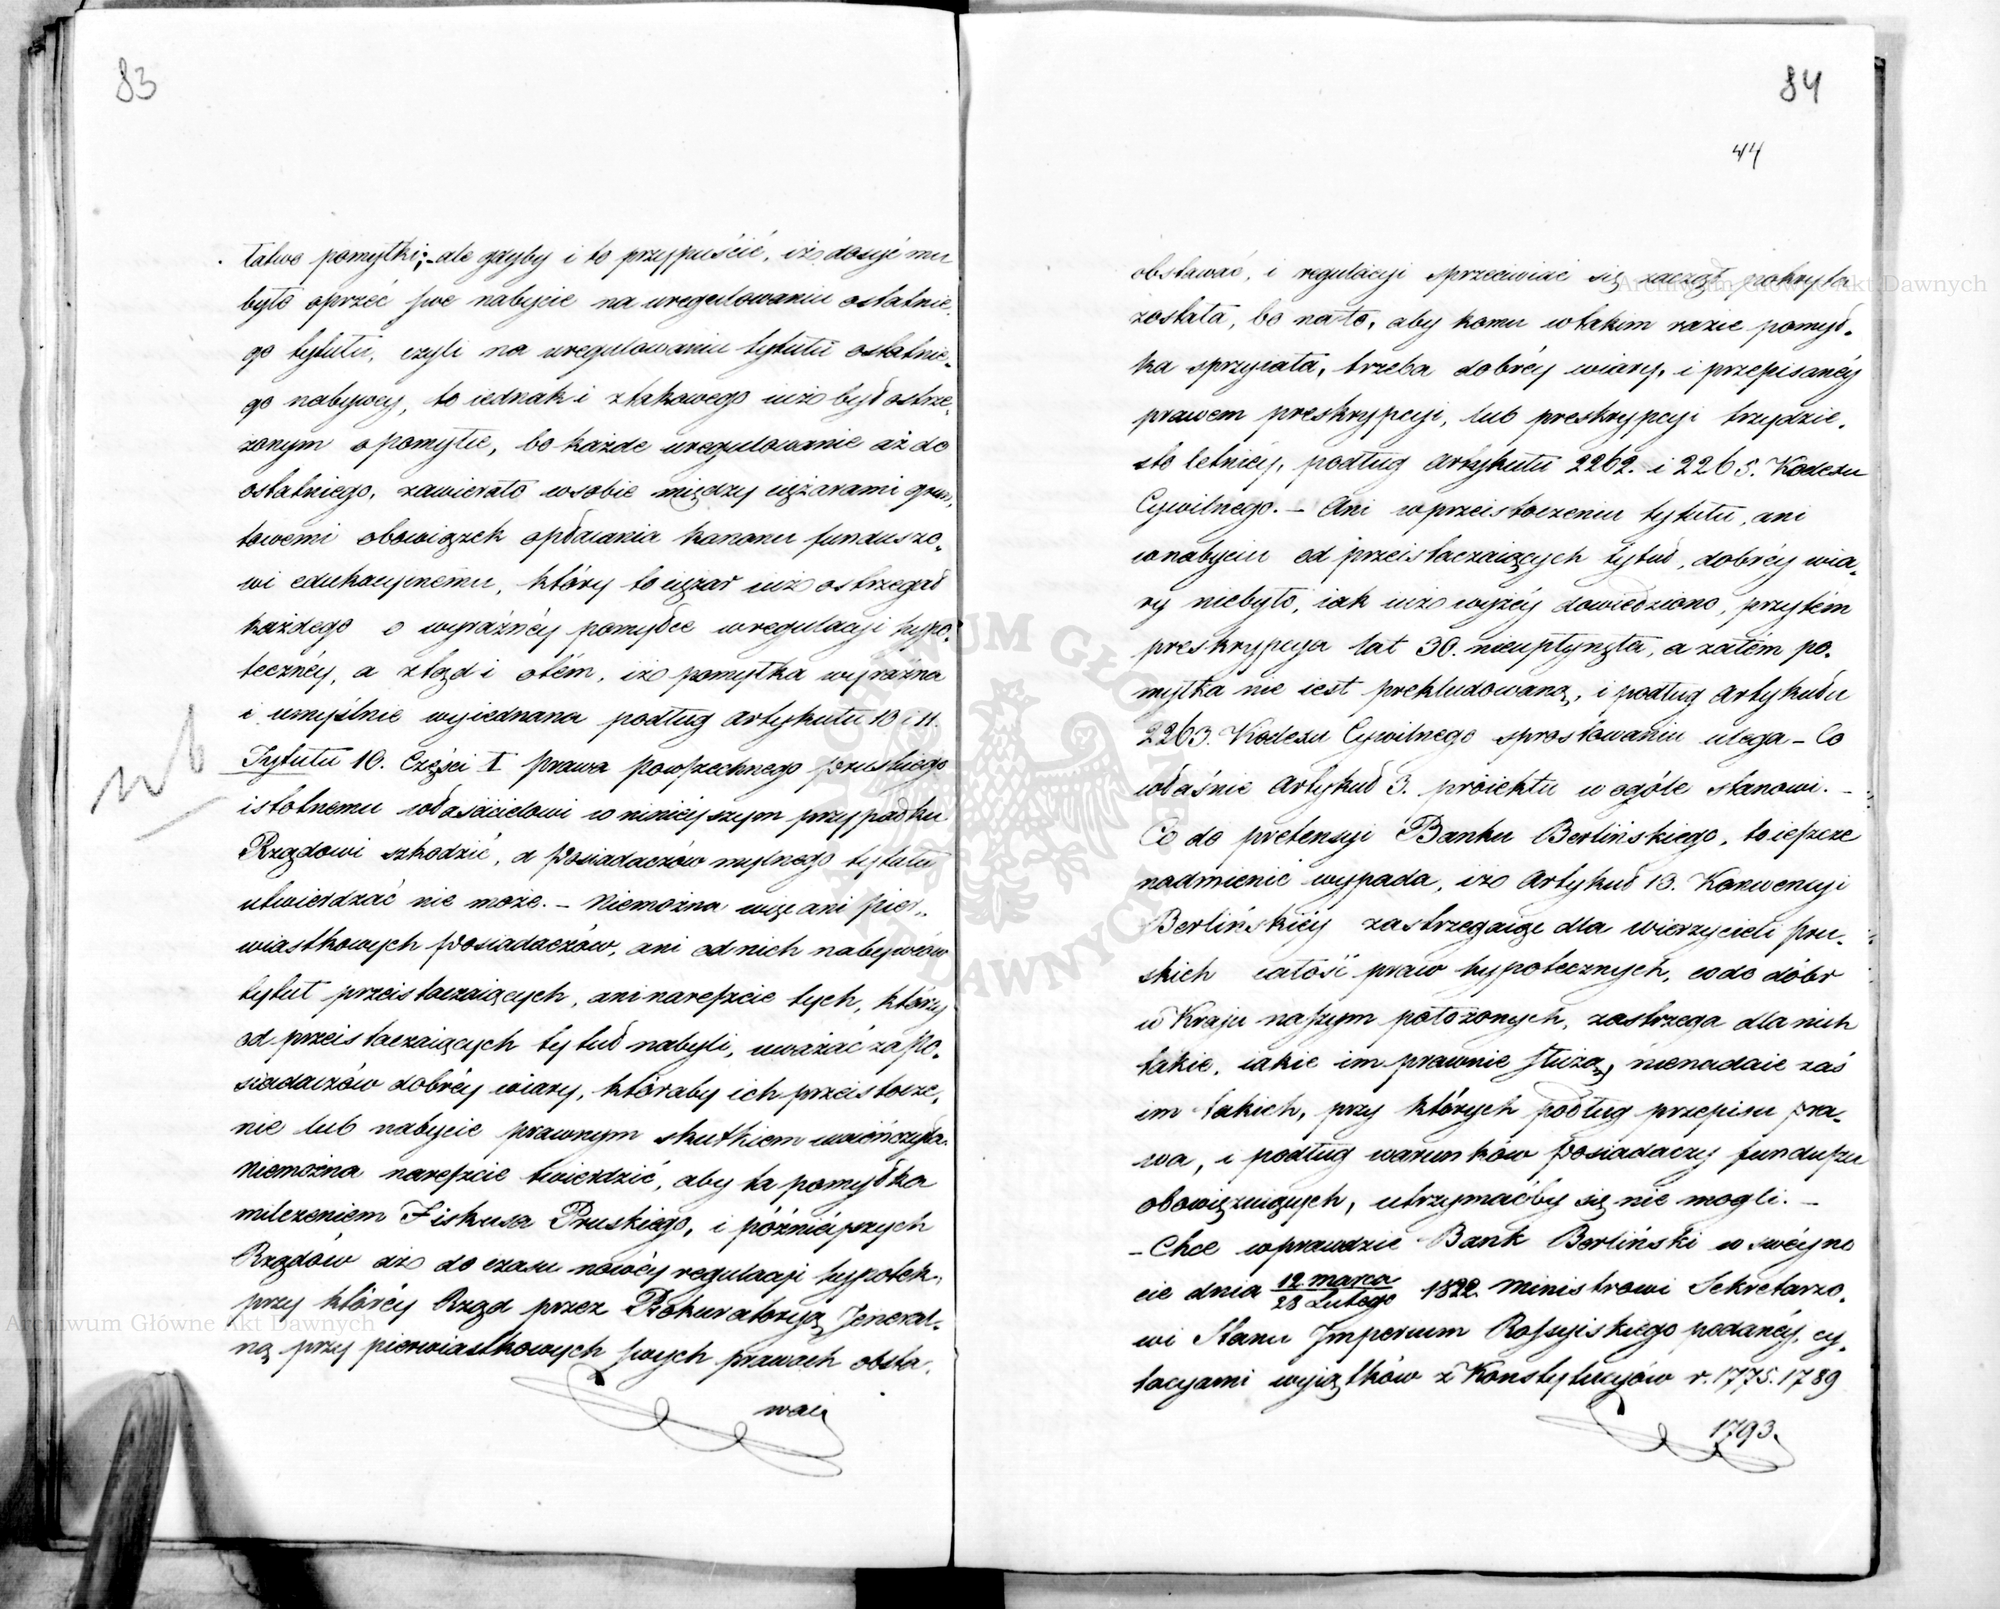 83
łatwo pomyłki; – ale gdyby i to przypuścić, iż dosyć mu
było oprzeć swe nabycie na uregulowaniu ostatnie-
go tytułu, czyli na uregulowaniu tytułu ostatnie-
go nabywcy, to iednak i z takowego iuż był ostrze-
żonym o pomyłce, bo każde uregulowanie aż do
ostatniego, zawierało w sobie między ciężarami grun-
towemi obowiązek opłacania kanonu funduszo-
wi edukacyinemu, który to ciężar iuż ostrzegał
każdego o wyraźnéy pomyłce w regulacyi hypo-
tecznéy, a ztąd i o tém, iż pomyłka wyraźna
i umyślnie wyiednana podług artykułu 10 i 11.
Tytułu 10. Części I prawa powszechnego pruskiego
istotnemu właścicielowi w ninieyszym przypadku
Rządowi szkodzić, a Posiadaczów mylnego tytułu
utwierdzać nie może. – Niemożna więc ani pier-
wiastkowych Posiadaczów, ani od nich nabywców
tytuł przeistaczaiących, ani nareszcie tych, którzy
od przeistaczaiących tytuł nabyli, uważać za Po-
siadaczów dobréy wiary, któraby ich przeistocze-
nie lub nabycie prawnym skutkiem uwieńczyła.
Niemożna nareszcie twierdzić, aby ta pomyłka
milczeniem Fiskusa Pruskiego, i późnieyszych
Rządów aż do czasu nowéy regulacyi hypotek,
przy któréy Rząd przez Prokuratoryą Jeneral-
ną przy pierwiastkowych swych prawach obsta-
wać
nb
84
44
obstawać, i regulacyi sprzeciwiać się zaczął pokryta
została, bo na to, aby komu w takim razie pomył-
ka sprzyiała, trzeba dobréy wiary, i przepisanéy
prawem preskrypcyi, lub preskrypcyi trzydzie-
sto letniéy, podług artykułu 2262. i 2265. Kodexu
Cywilnego. – Ani w przeistoczeniu tytułu, ani
w nabyciu od przeistaczaiących tytuł, dobréy wia-
ry niebyło, iak iuż wyżéy dowiedziono, przytém
preskrypcya lat 30. nieupłynęła, a zatém po-
myłka nie iest prekludowaną, i podług artykułu
2263. Kodexu Cywilnego sprostowaniu ulega – Co
właśnie Artykuł 3. proiektu w ogóle stanowi. –
Co do pretensyi Banku Berlińskiego, to ieszcze
nadmienić wypada, iż Artykuł 13. Konwencyi
Berlińskiéy zastrzegaiąc dla wierzycieli pru-
skich całość praw hypotecznych, co do dóbr
w Kraju naszym położonych, zastrzega dla nich
takie, iakie im prawnie służą, nienadaie zaś
im takich, przy których podług przepisu pra-
wa, i podług warunków Posiadaczy funduszu
obowięzuiących, utrzymaćby się nie mogli. –
– Chce wprawdzie Bank Berliński w swéy no
cie dnia 12 marca / 28 Lutego 1822. Ministrowi Sekretarzo-
wi Stanu Imperium Rossyiskiego podanéy, cy-
tacyami wyiątków z Konstytucyów r. 1775. 1789
1793.
Archiwum Główne Akt Dawnych
Archiwum Główne Akt Dawnych
ARCHIWUM GŁÓWNE AKT DAWNYCH